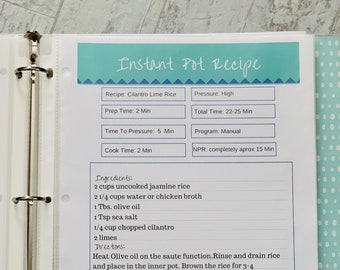 Instant Pot Recipe
Recipe: Cilantro Lime Rice
Pressure: High
Prep Time: 2 Min
Total Time: 22-25 Min
Time To Pressure: 5 Min
Program: Manual
Cook Time: 2 Min
NPR: completely aprox 15 Min
Ingredients:
2 cups uncooked jasmine rice
2 1/4 cups water or chicken broth
1 Tbs. olive oil
1 Tsp sea salt
1/4 cup chopped cilantro
2 limes
Directions:
Heat Olive oil on the saute function.Rinse and drain rice
and place in the inner pot. Brown the rice for 3-4